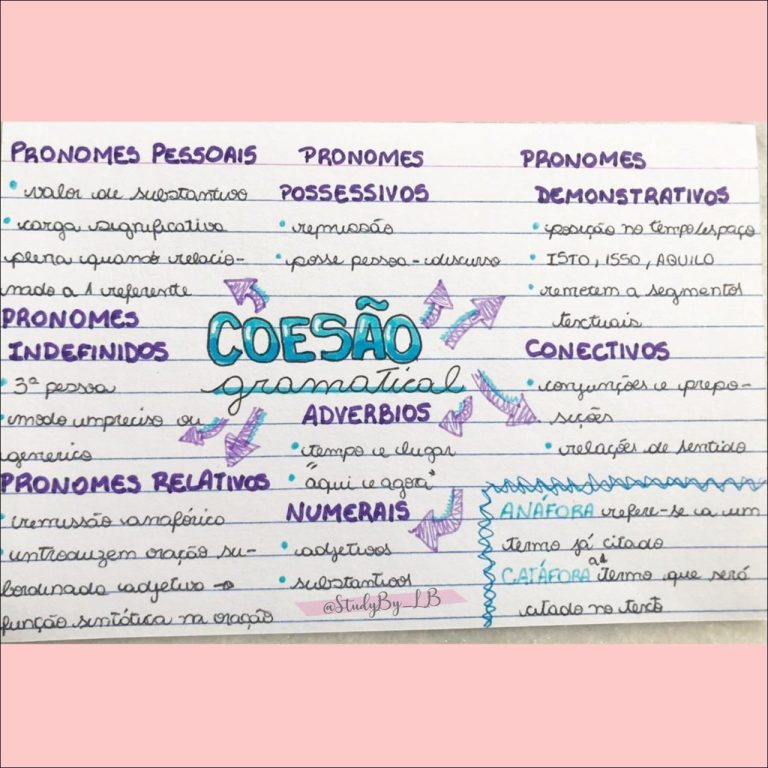 PRONOMES PESSOAIS
• valor de substantivo
• carga significativa
plena quando relacio-
nado a 1 referente
PRONOMES
POSSESSIVOS
• remissão
• posse pessoa-discurso
PRONOMES
DEMONSTRATIVOS
• posição no tempo/espaço
• ISTO, ISSO, AQUILO
• remetem a segmentos
textuais
COESÃO
gramatical
PRONOMES
INDEFINIDOS
• 3ª pessoa
• modo impreciso ou
generico
ADVERBIOS
• tempo e lugar
• "aqui e agora"
CONECTIVOS
• conjunções e prepo-
sições
• relações de sentido
PRONOMES RELATIVOS
• remissão anafórica
• introduzem oração su-
bordinada adjetiva →
função sintática na oração
NUMERAIS
• adjetivos
• substantivos
@StudyBy_LB
ANÁFORA refere-se a um
termo já citado
CATÁFORA termo que será
citado no texto